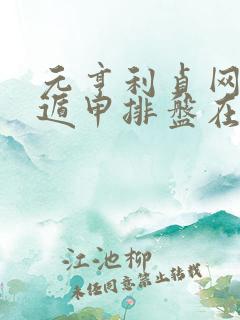 元亨利贞网
遁甲排盘在
江池柳
未经同意禁止转载